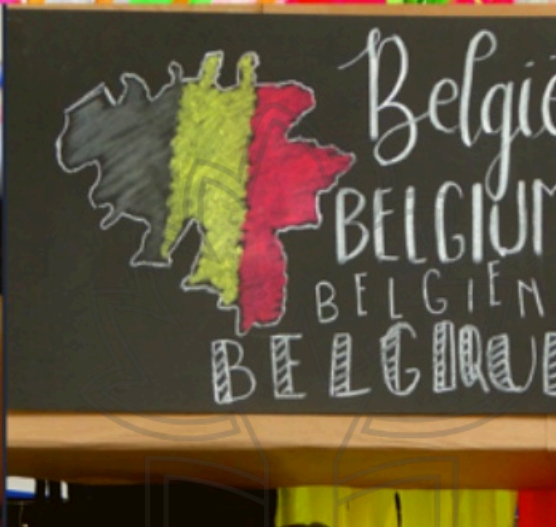 België
BELGIUM
BELGIEN
BELGIQUE